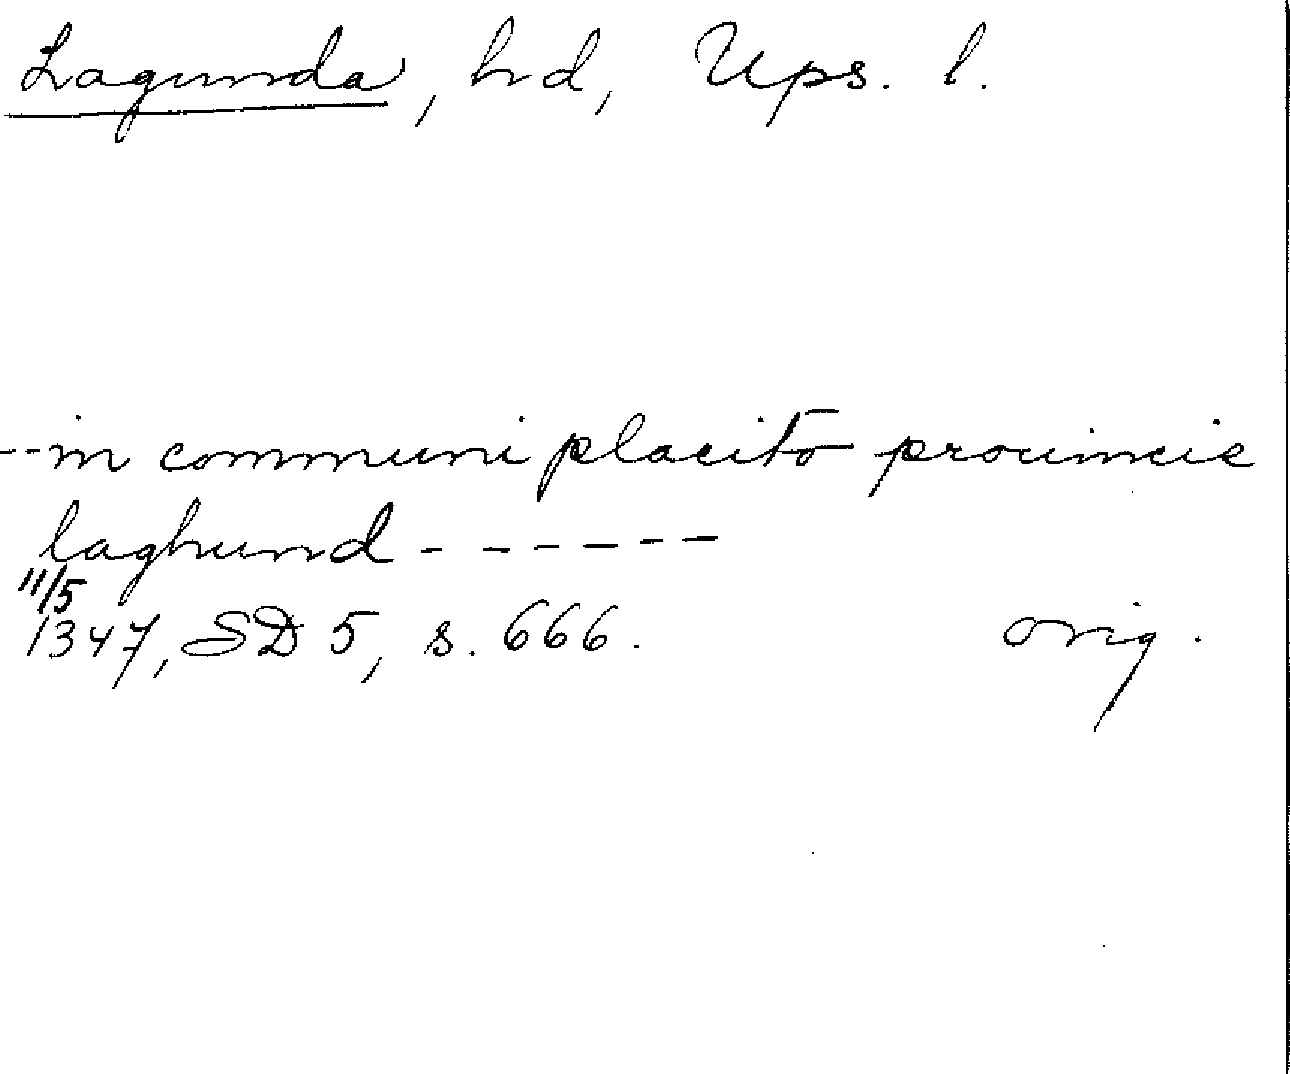 Lagunda, hd, Ups. l.
--in communi placito prouincie
laghund ------
11/5
1347, SD 5, s. 666. orig.